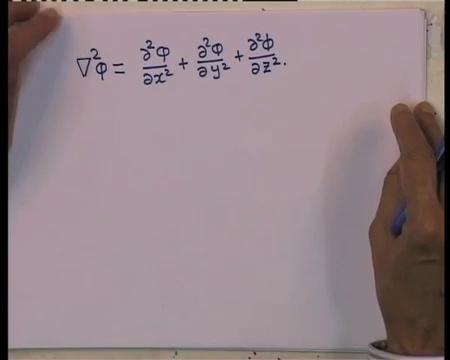 ∇²φ = ∂²φ/∂x² + ∂²φ/∂y² + ∂²φ/∂z².